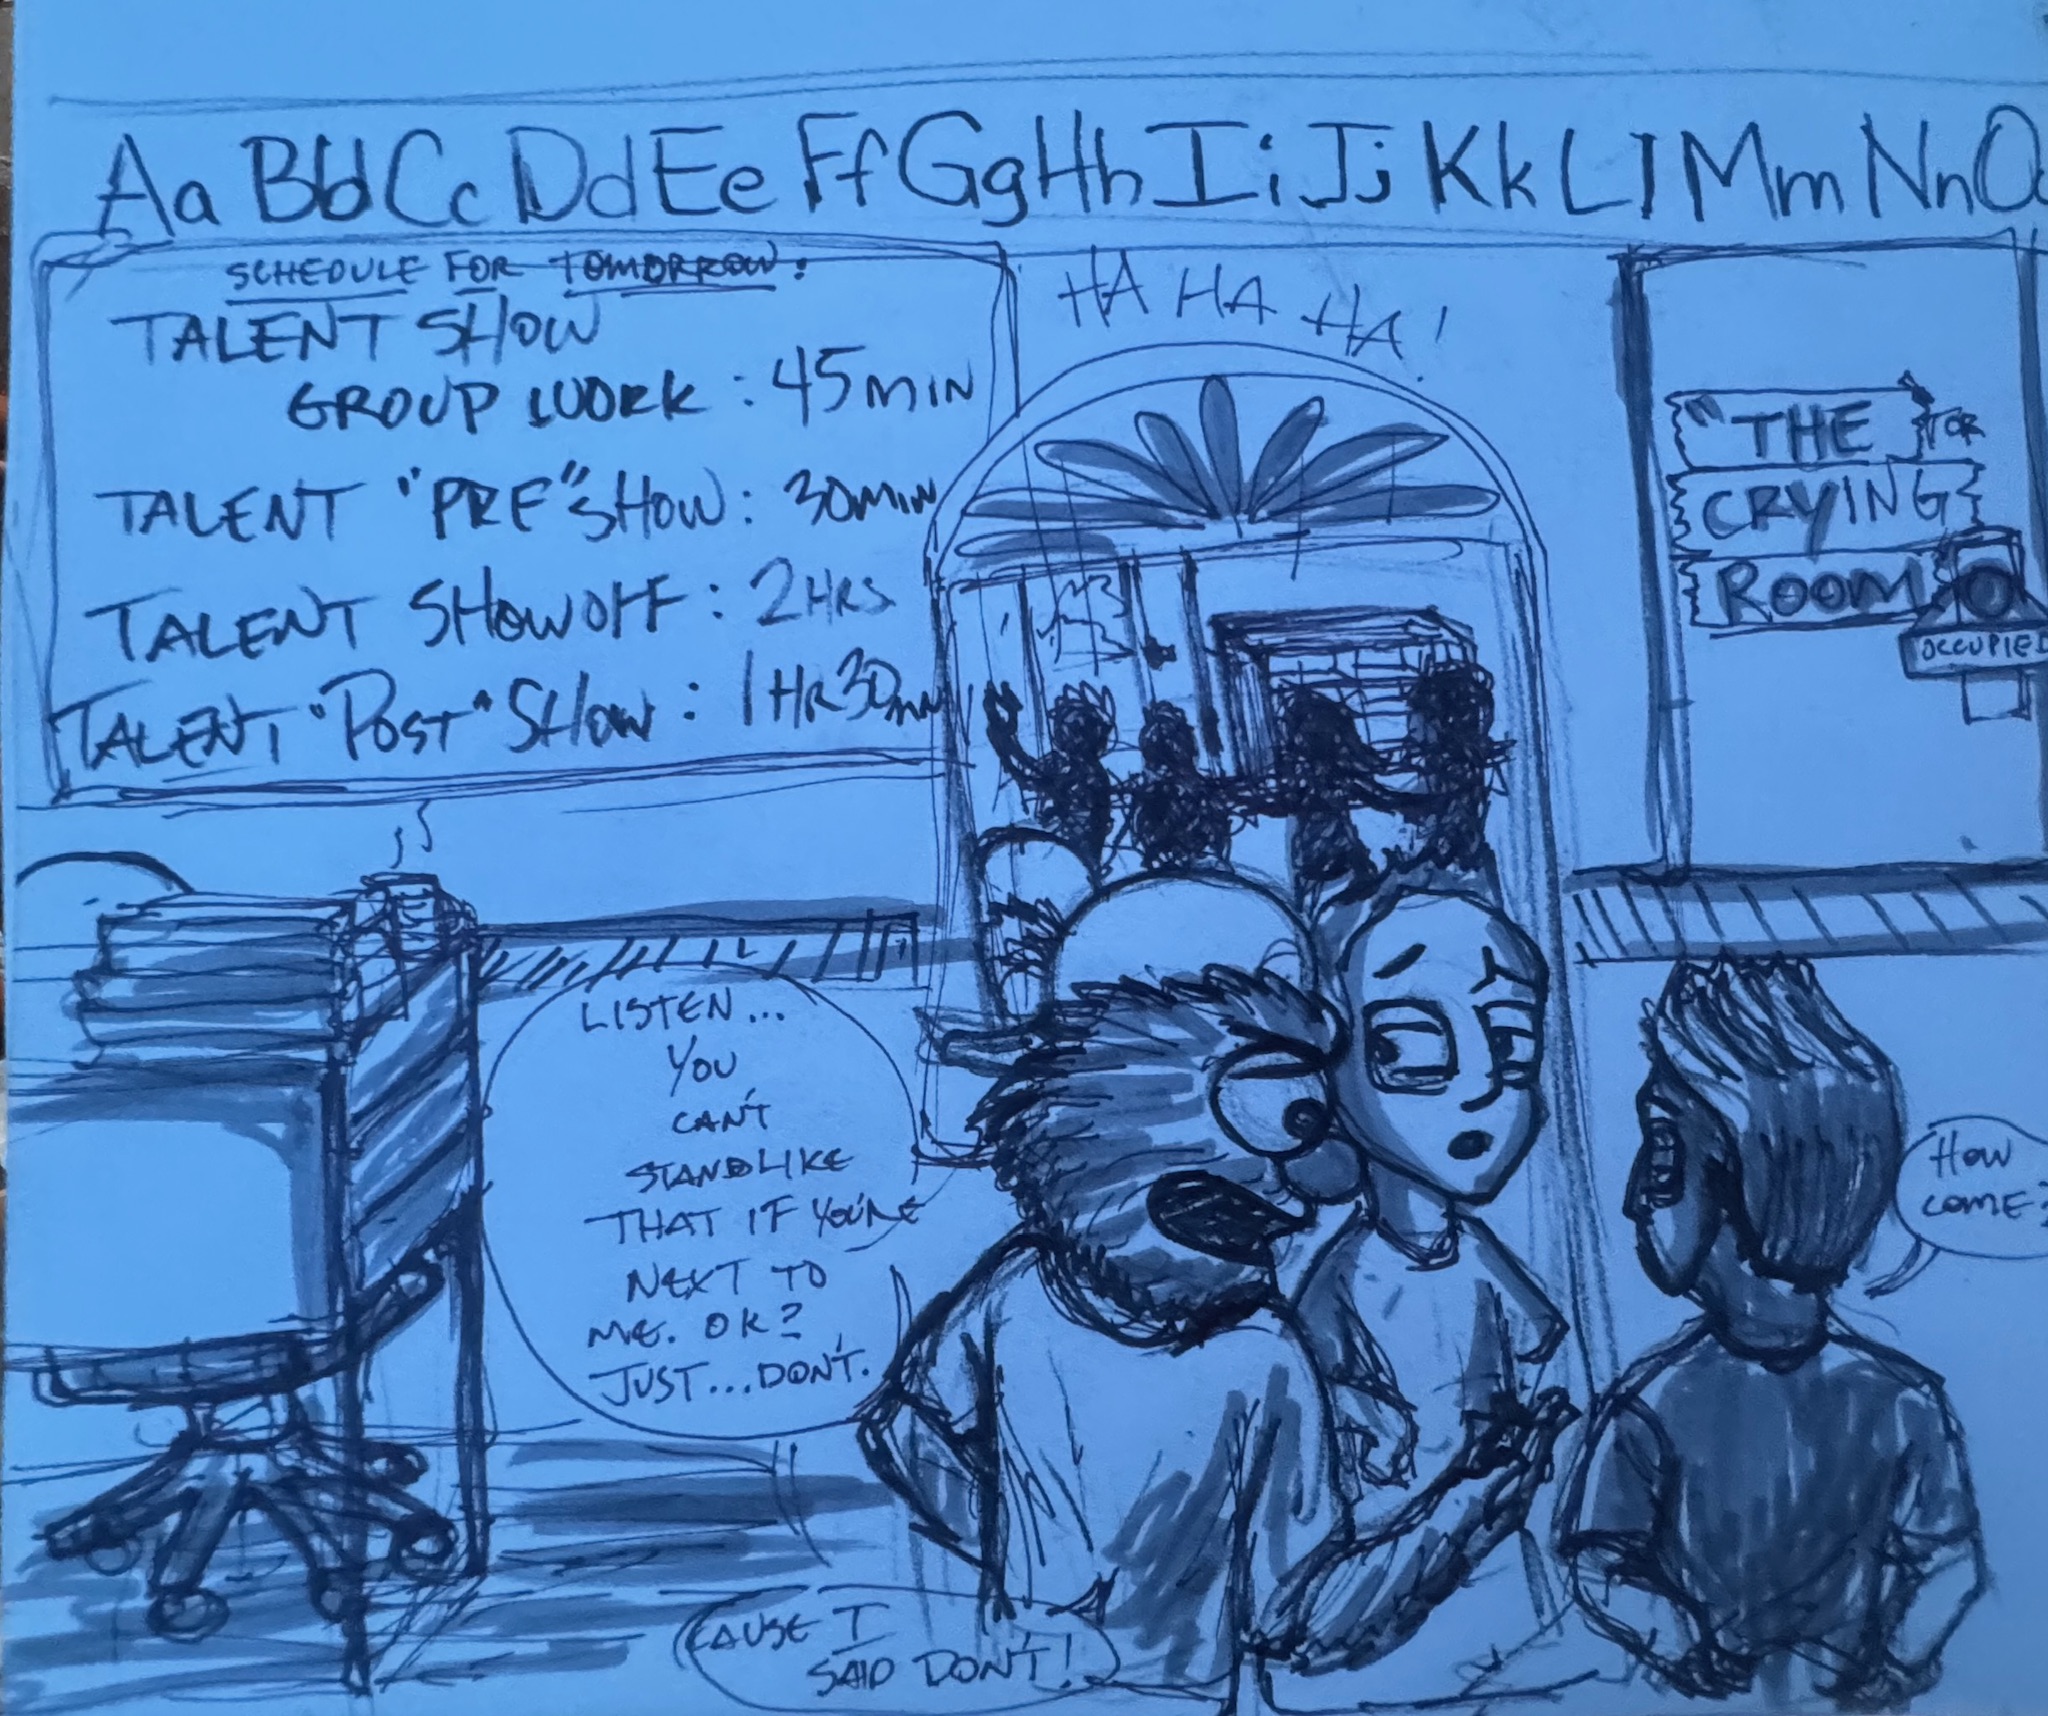 Aa Bb Cc Dd Ee Ff Gg Hh Ii Jj Kk Ll Mm Nn O
SCHEDULE FOR TOMORROW:
TALENT SHOW
GROUP WORK : 45 MIN
TALENT "PRE" SHOW: 30 MIN
TALENT SHOWOFF : 2 HRS
TALENT "POST" SHOW : 1 HR 30 MIN
HA HA HA!
"THE
CRYING
ROOM
OCCUPIED
LISTEN...
YOU
CAN'T
STAND LIKE
THAT IF YOU'RE
NEXT TO
ME. OK?
JUST...DON'T.
HOW
COME?
CAUSE I
SAID DON'T!